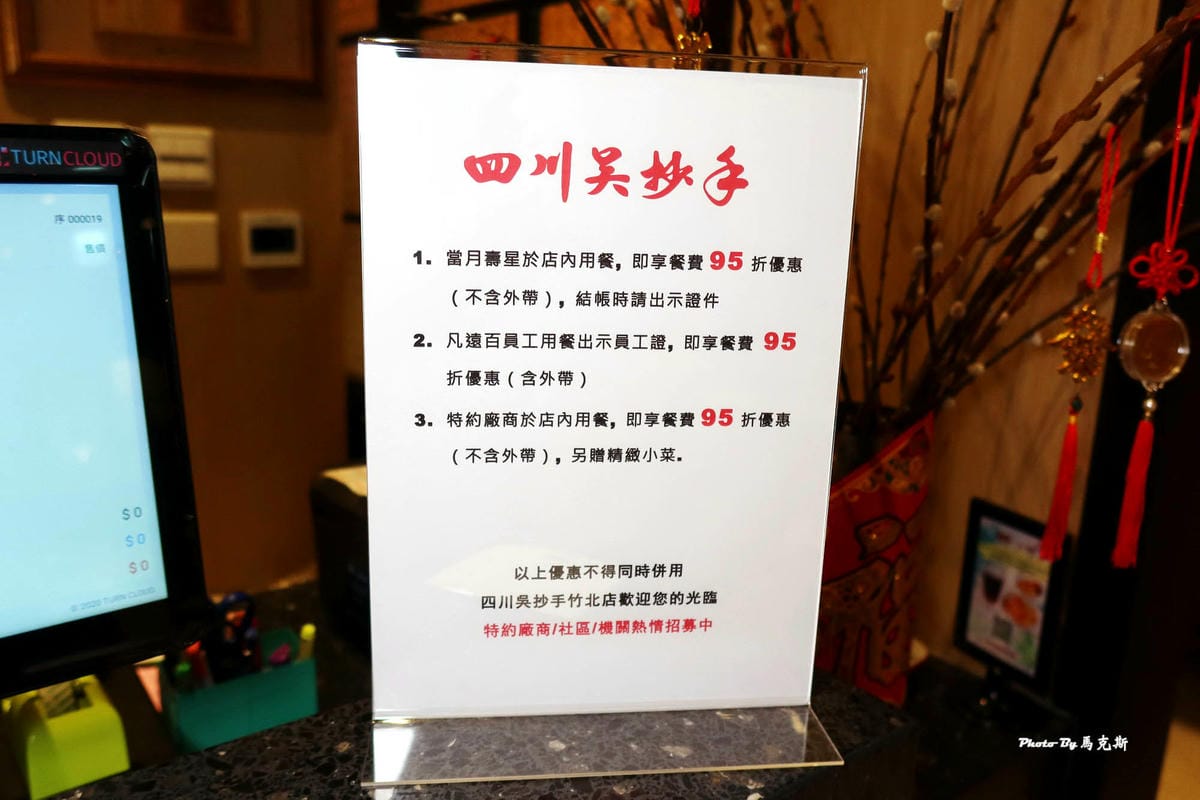 TURNCLOUD
序 000019
售價
$ 0
$ 0
$ 0
© 2020 TURN CLOUD
四川吳抄手
1. 當月壽星於店內用餐, 即享餐費 95 折優惠
（不含外帶）, 結帳時請出示證件
2. 凡遠百員工用餐出示員工證, 即享餐費 95
折優惠（含外帶）
3. 特約廠商於店內用餐, 即享餐費 95 折優惠
（不含外帶）, 另贈精緻小菜.
以上優惠不得同時併用
四川吳抄手竹北店歡迎您的光臨
特約廠商/社區/機關熱情招募中
Photo By 馬克斯